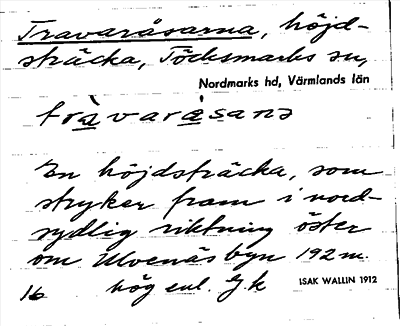 Travaråsarna, höjd-
sträcka, Töcksmarks sn,
Nordmarks hd, Värmlands län
En höjdsträcka, som
stryker fram i nord-
sydlig riktning öster
om Ulvenäs byn 192 m.
16 hög enl. G.k
ISAK WALLIN 1912